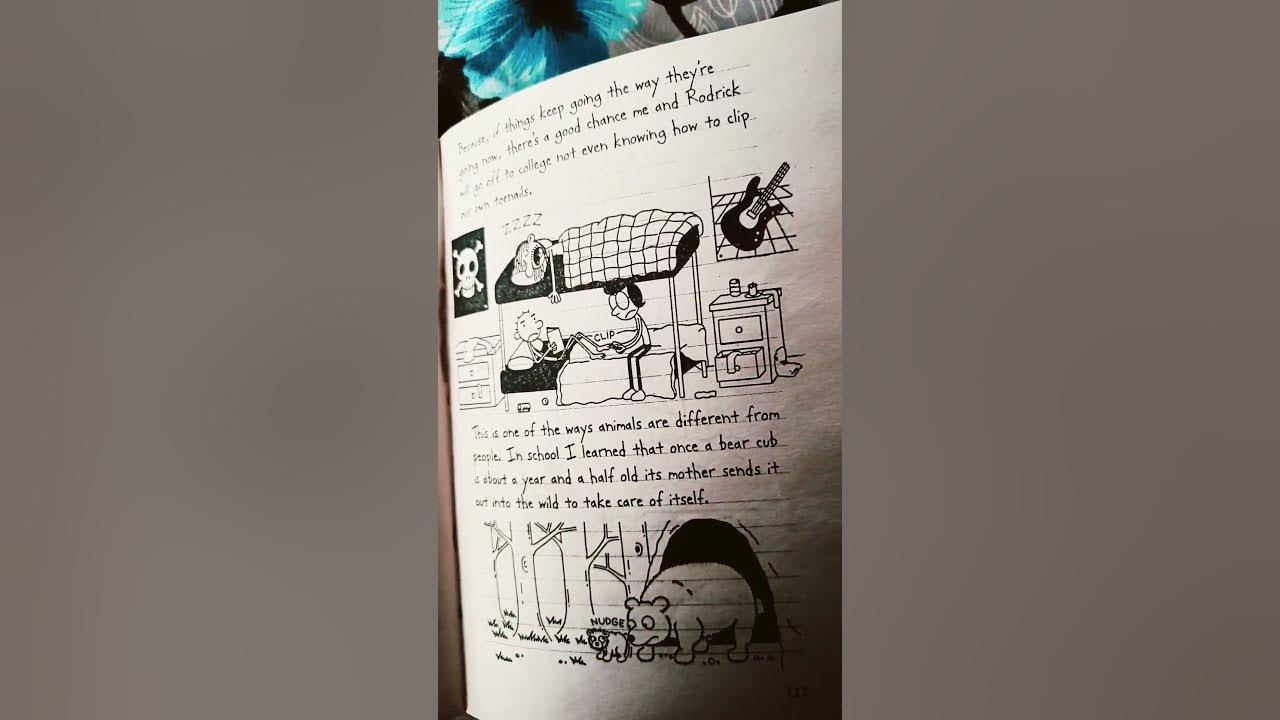 Because, if things keep going the way they're
going now, there's a good chance me and Rodrick
will go off to college not even knowing how to clip
our own toenails.
ZZZZ
CLIP
This is one of the ways animals are different from
people. In school I learned that once a bear cub
is about a year and a half old its mother sends it
out into the wild to take care of itself.
NUDGE
123